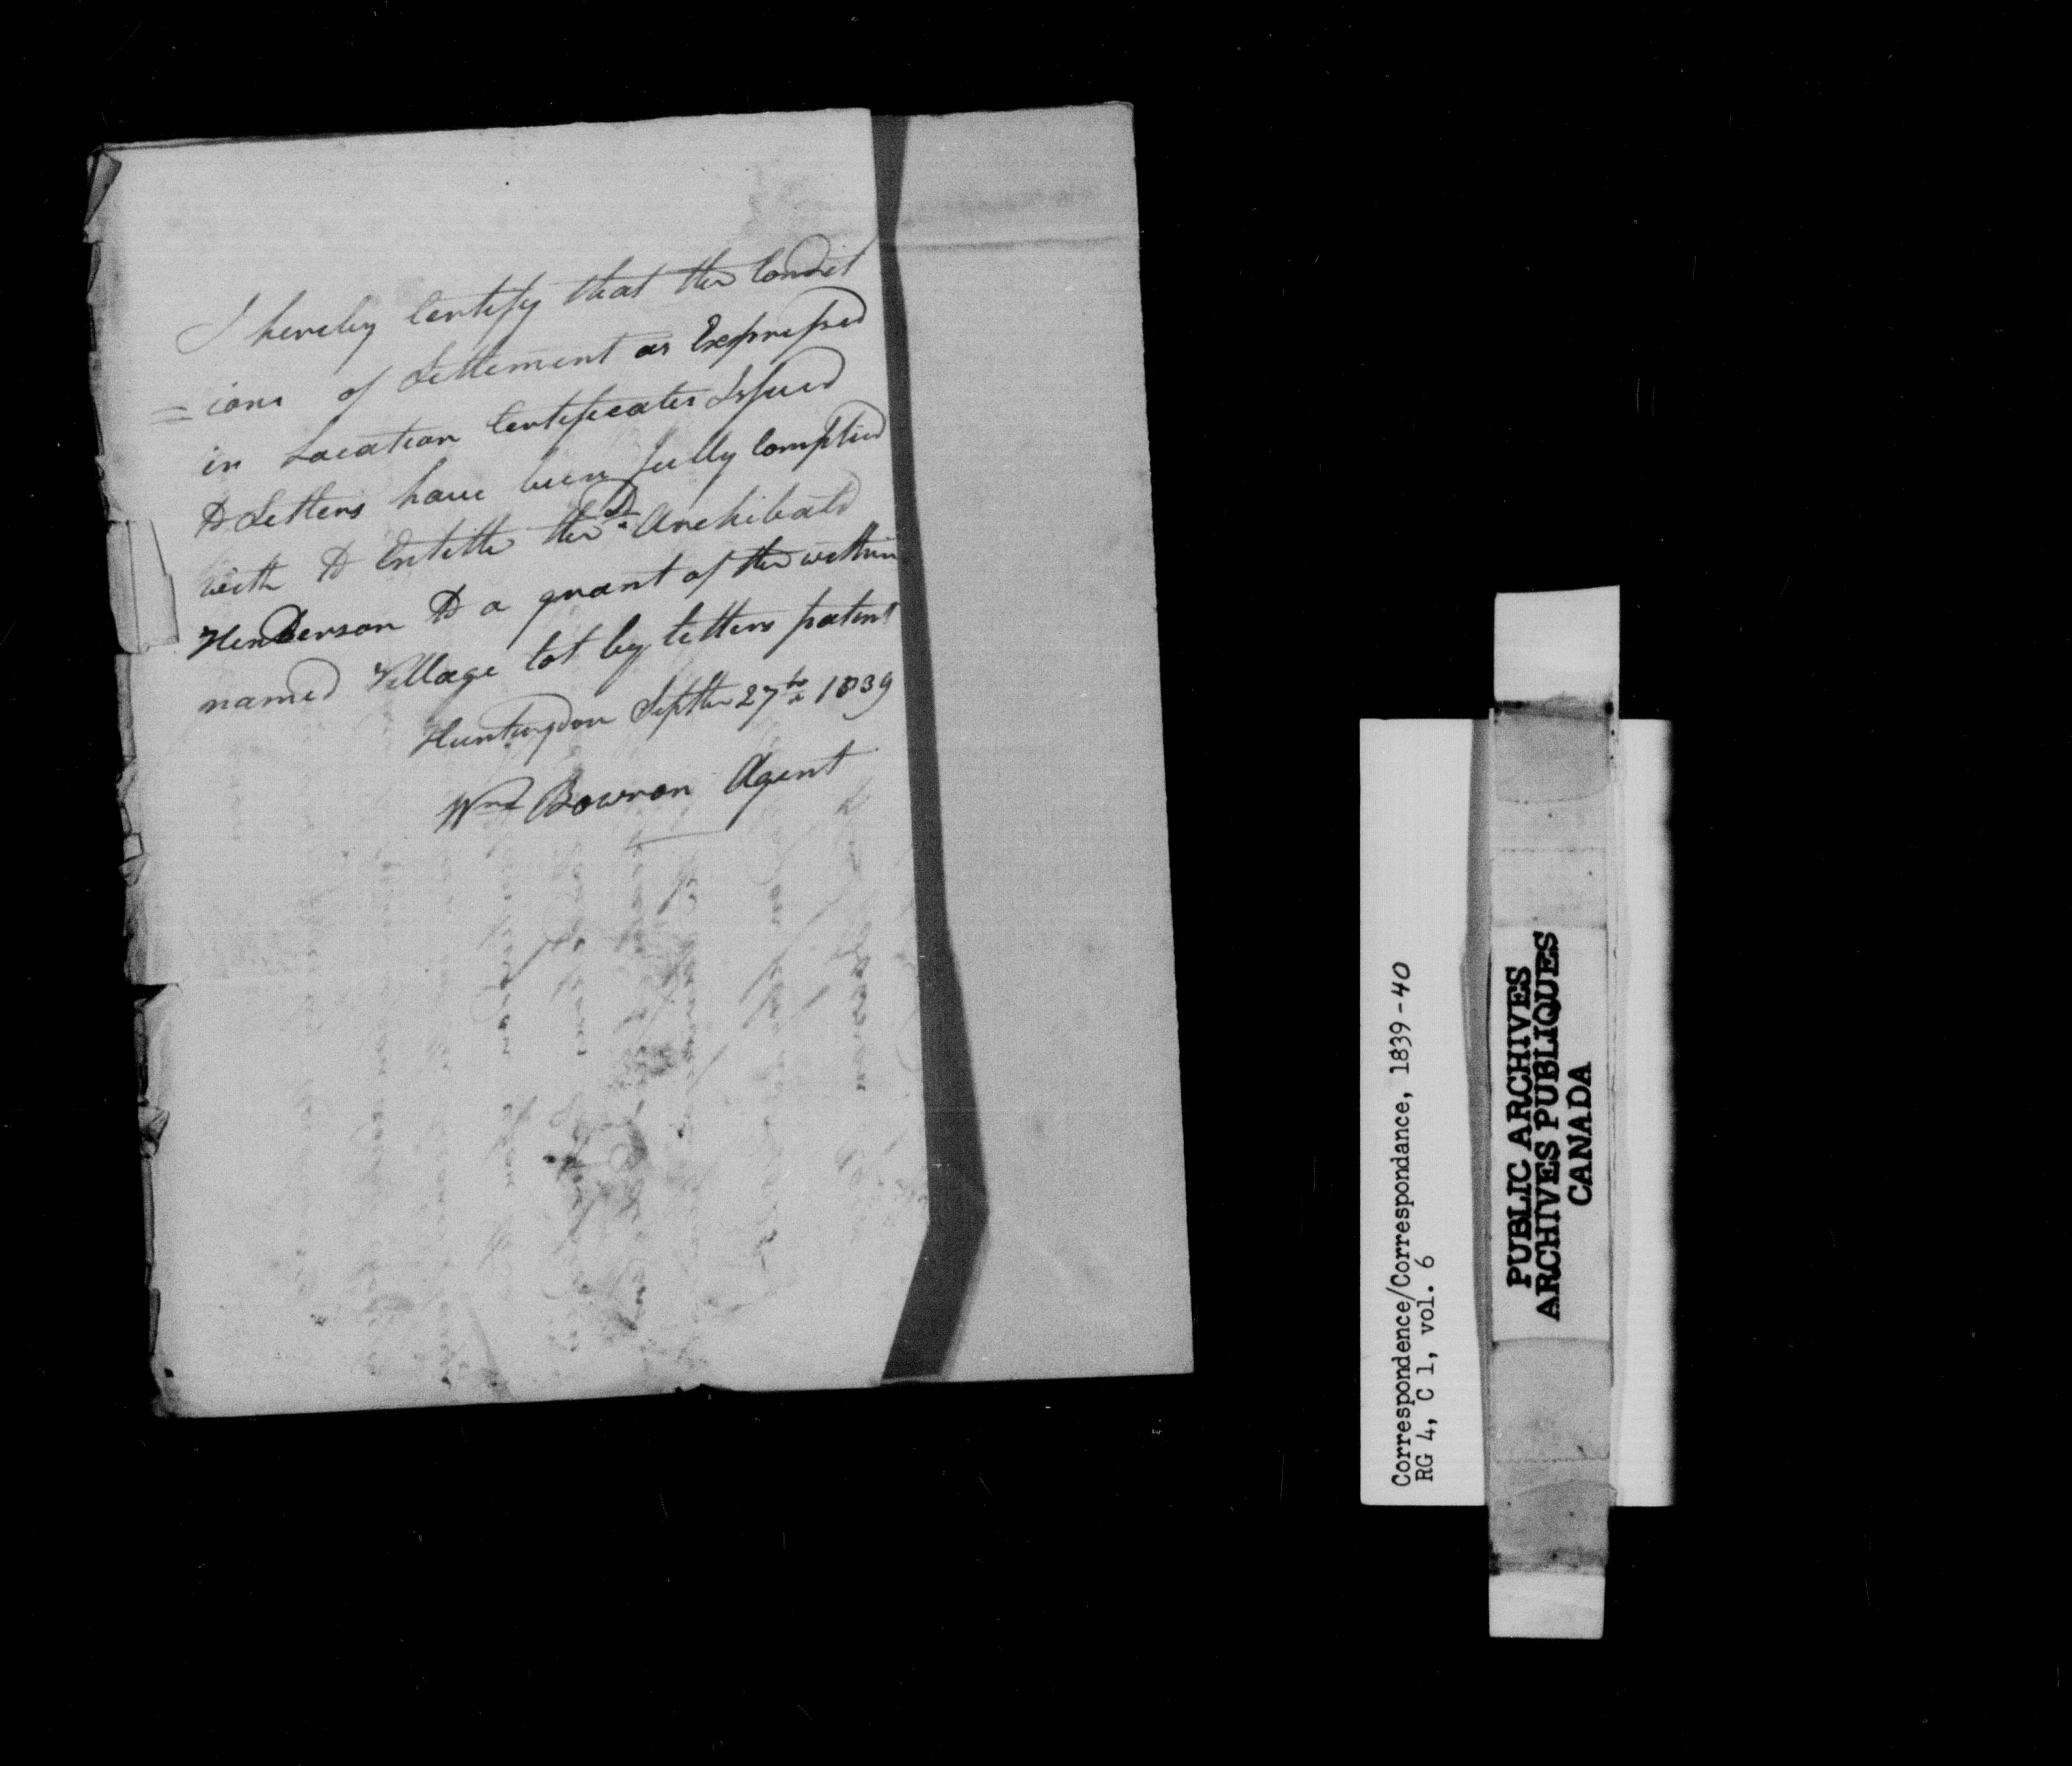 I hereby Certify that the Condit
= ions of Settlement as Expressed
in Location Certificates Issued
to Settlers have been fully Complied
with to Entitle the Dr. Archibald
Henderson to a grant of the within
named Village lot by letters patent
Huntingdon Septbr 27th 1839
Wm Bowron Agent
Correspondence/Correspondance, 1839-40
RG 4, C 1, vol. 6
PUBLIC ARCHIVES
ARCHIVES PUBLIQUES
CANADA